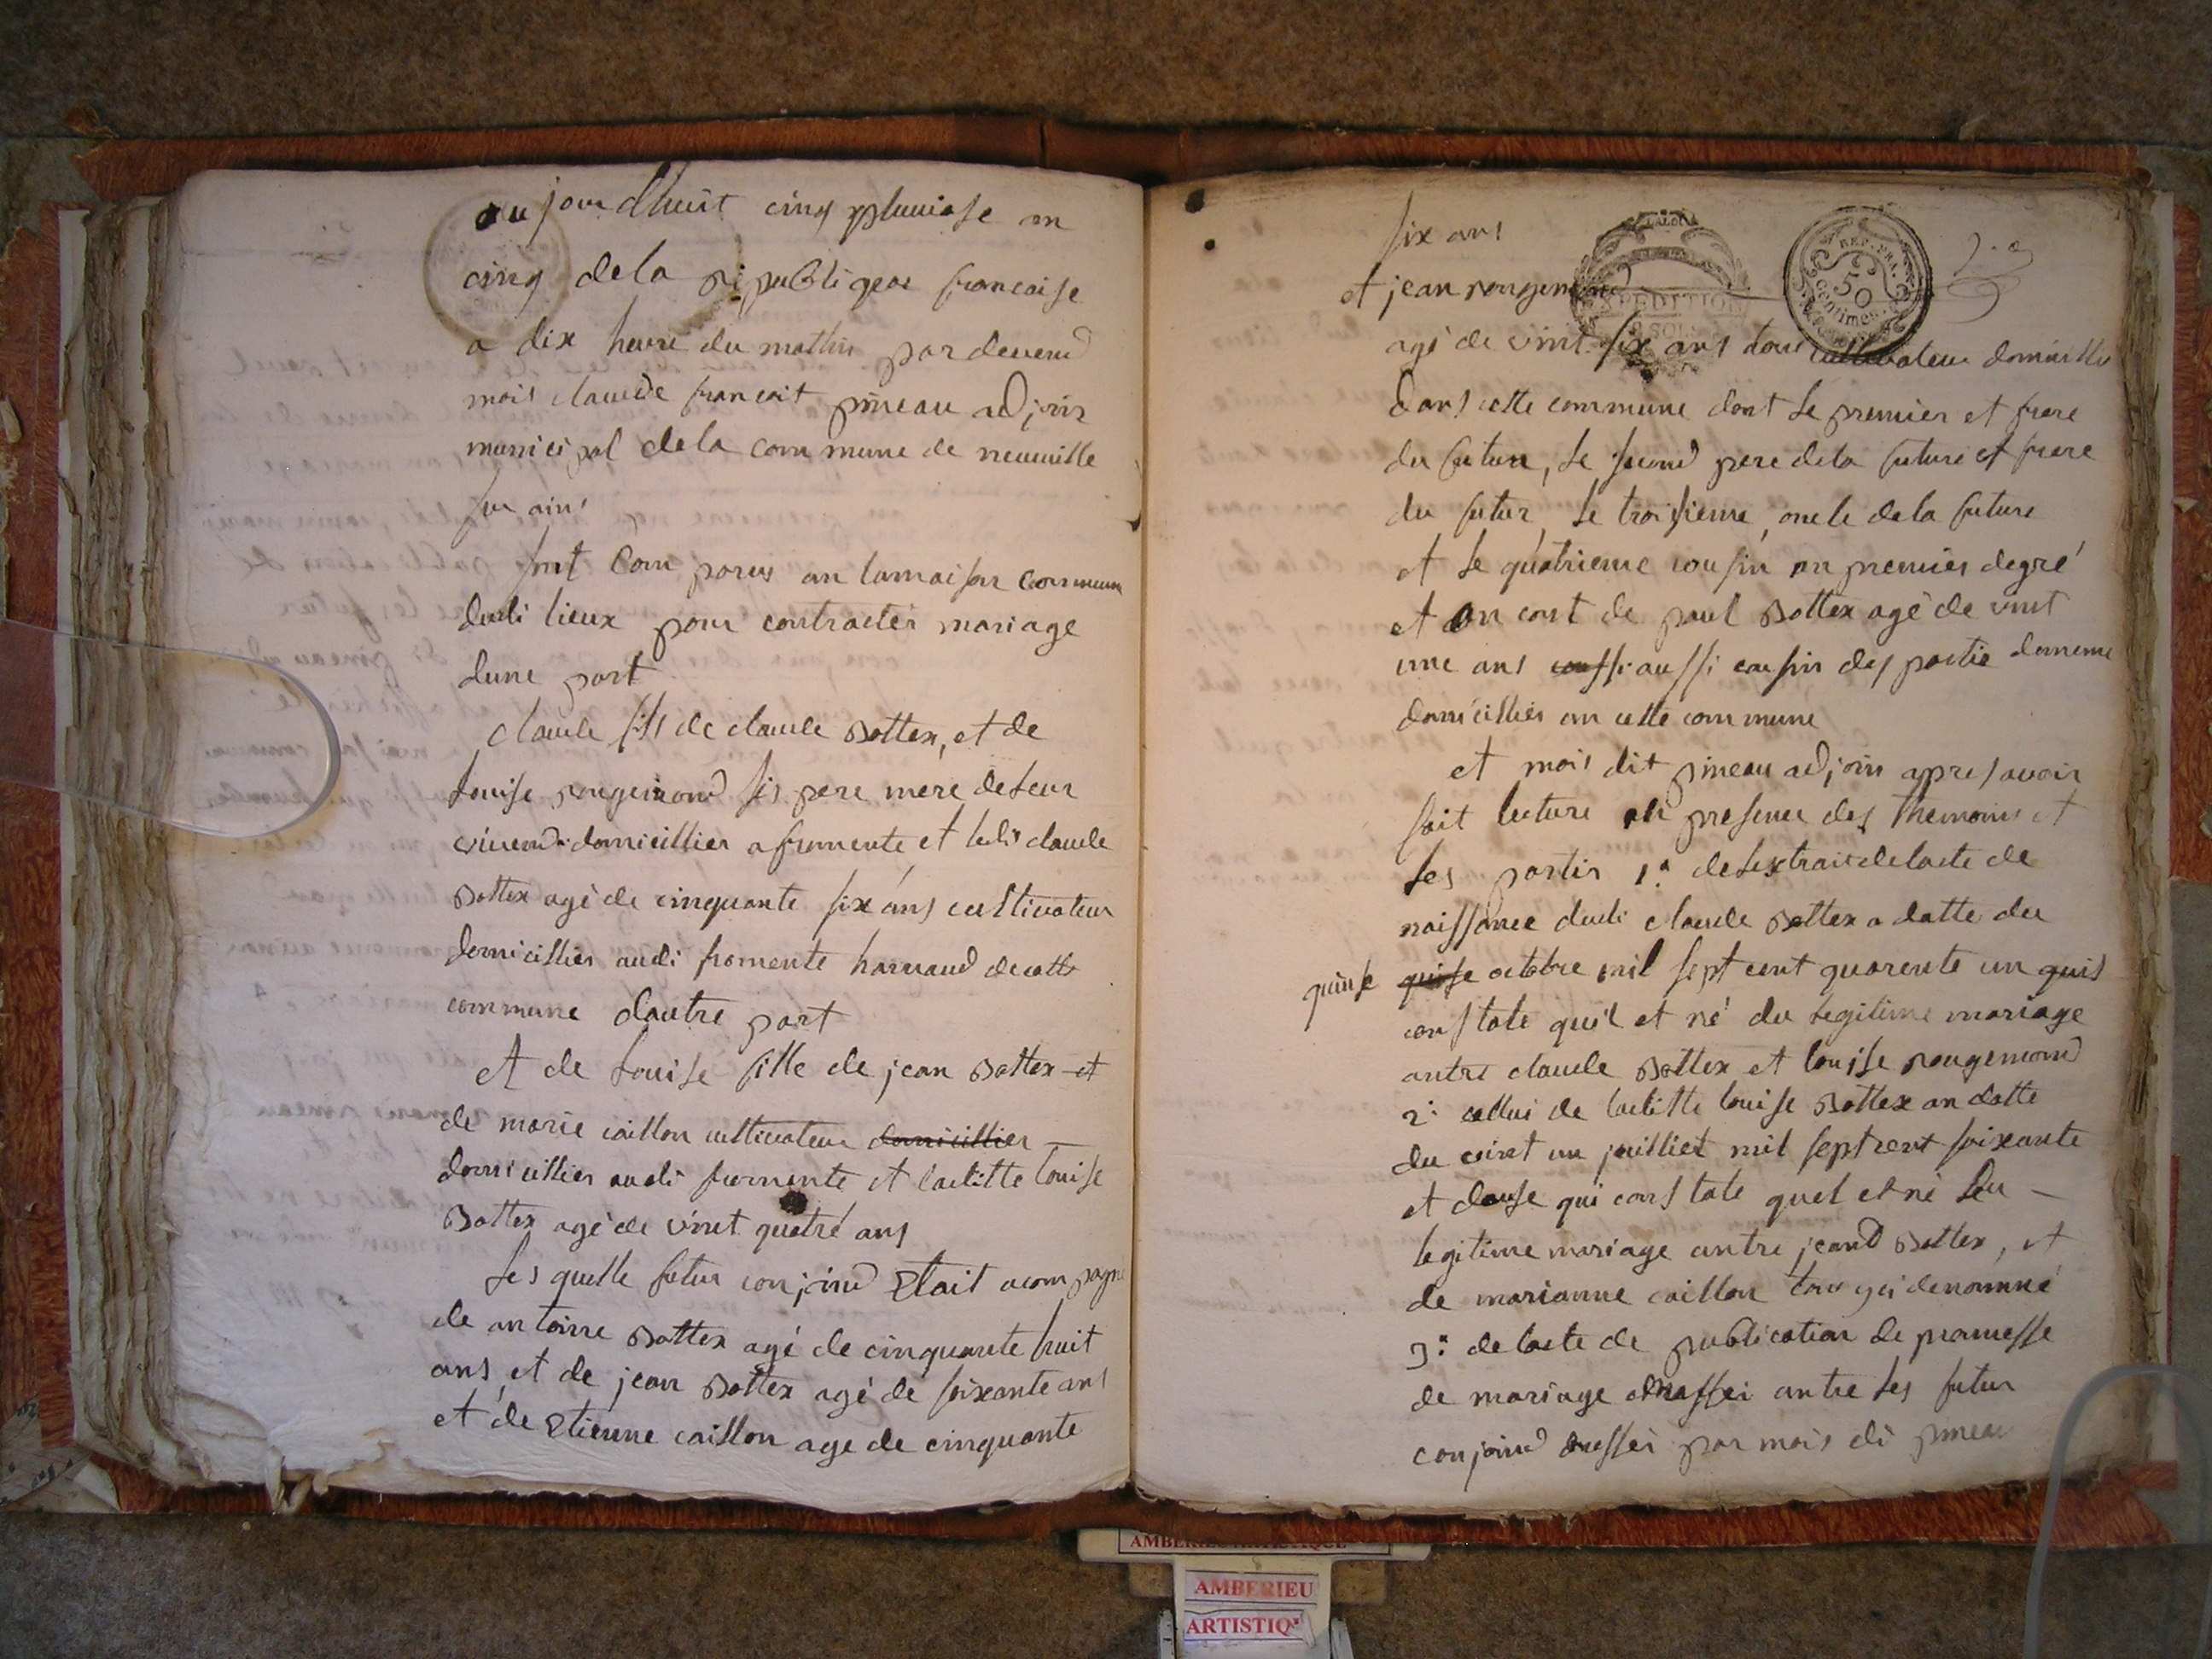 aujourdhuit cinq pluviose an
cinq dela republiqeue francaise
a dix heure du mathin par devend
mois claude francoit pineau adjoin
municipal dela commune de neuville
sur ains
sont Com parus an lamaison Commune
dudi lieux pour contracter mariage
dune part
claude fils de claude Bottex, et de
Louise rougemond ses pere mere deleur
vivend domicillier a fromente et ledi claude
Bottex agé de cinquante six ans cultivateur
domicillier audi fromente hamaud decette
commune dautre part
et de Louise fille de jean Bottex et
de marie caillon cultivateur domicillier
domicillier audi fromente et laditte louise
Bottex agé de vint quatre ans
Les quelle futur conjoind Etait acompagné
de antoine Bottex agé de cinquante huit
ans, et de jean Bottex agé de soixante ans
et de Etienne caillon age de cinquante
six ans
et jean rougemond
EXPEDITION
REP. FRA.
50
centimes
agé de vint six ans tous cultivateur domicillié
dans cette commune dont le premier et frere
du futur, le second pere dela future et frere
du futur le troisieme oncle dela future
et le quatrieme cousin an premier degré
et an cort de paul Bottex agé de vint
une ans coussi aussi cousin des partie dememe
domicillier an cette commune
et mois dit pineau adjoin apres avoir
fait lecture en presence des themoins et
les partis 1.º de lextrait delacte de
naissance dudi claude Bottex a datte du
quinse quise octobre mil sept cent quarente un quis
constate quil et né du Legitime mariage
antre claude Bottex et louise rougemond
2º cellui de laditte louise Bottex an datte
du vint un juilliet mil sept cent soixante
et douse qui constate quel et né du
legitime mariage antre jeand Bottex, et
de marianne caillon tous gi denommé
3º delacte de publication de promesse
de mariage antre les futur
conjoind dressei par mois di pineau
AMBERIEU ARTISTIQUE
AMBERIEU
ARTISTIQ